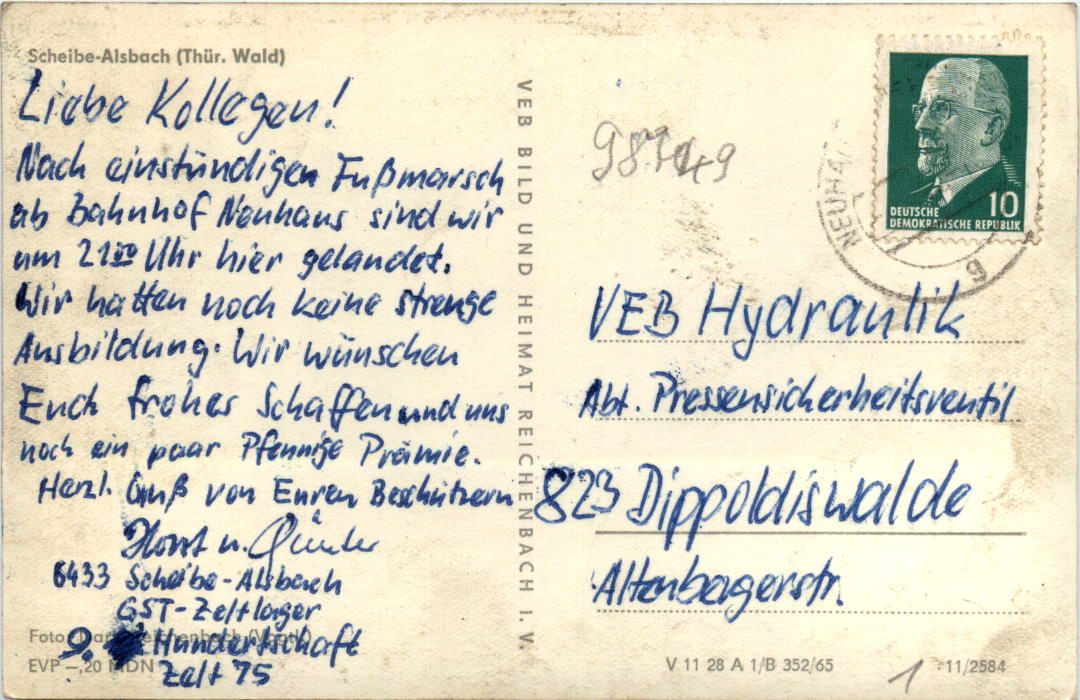 Scheibe-Alsbach (Thür. Wald)
Liebe Kollegen!
Nach einstündigen Fußmarsch
ab Bahnhof Neuhaus sind wir
um 21⁰⁰ Uhr hier gelandet.
Wir hatten noch keine strenge
Ausbildung. Wir wünschen
Euch frohes Schaffen und uns
noch ein paar Pfennige Prämie.
Herzl. Gruß von Euren Beschützern
Horst u. Günter
6433 Scheibe-Alsbach
GST-Zeltlager
9. Hundertschaft
Zelt 75
Foto: Reichenbach (Vogtl.)
EVP –,20 MDN
VEB BILD UND HEIMAT REICHENBACH I. V.
DEUTSCHE
DEMOKRATISCHE REPUBLIK
10
NEUHA
g
VEB Hydraulik
Abt. Pressensicherheitsventil
823 Dippoldiswalde
Altenbergerstr.
V 11 28 A 1/B 352/65
1
11/2584